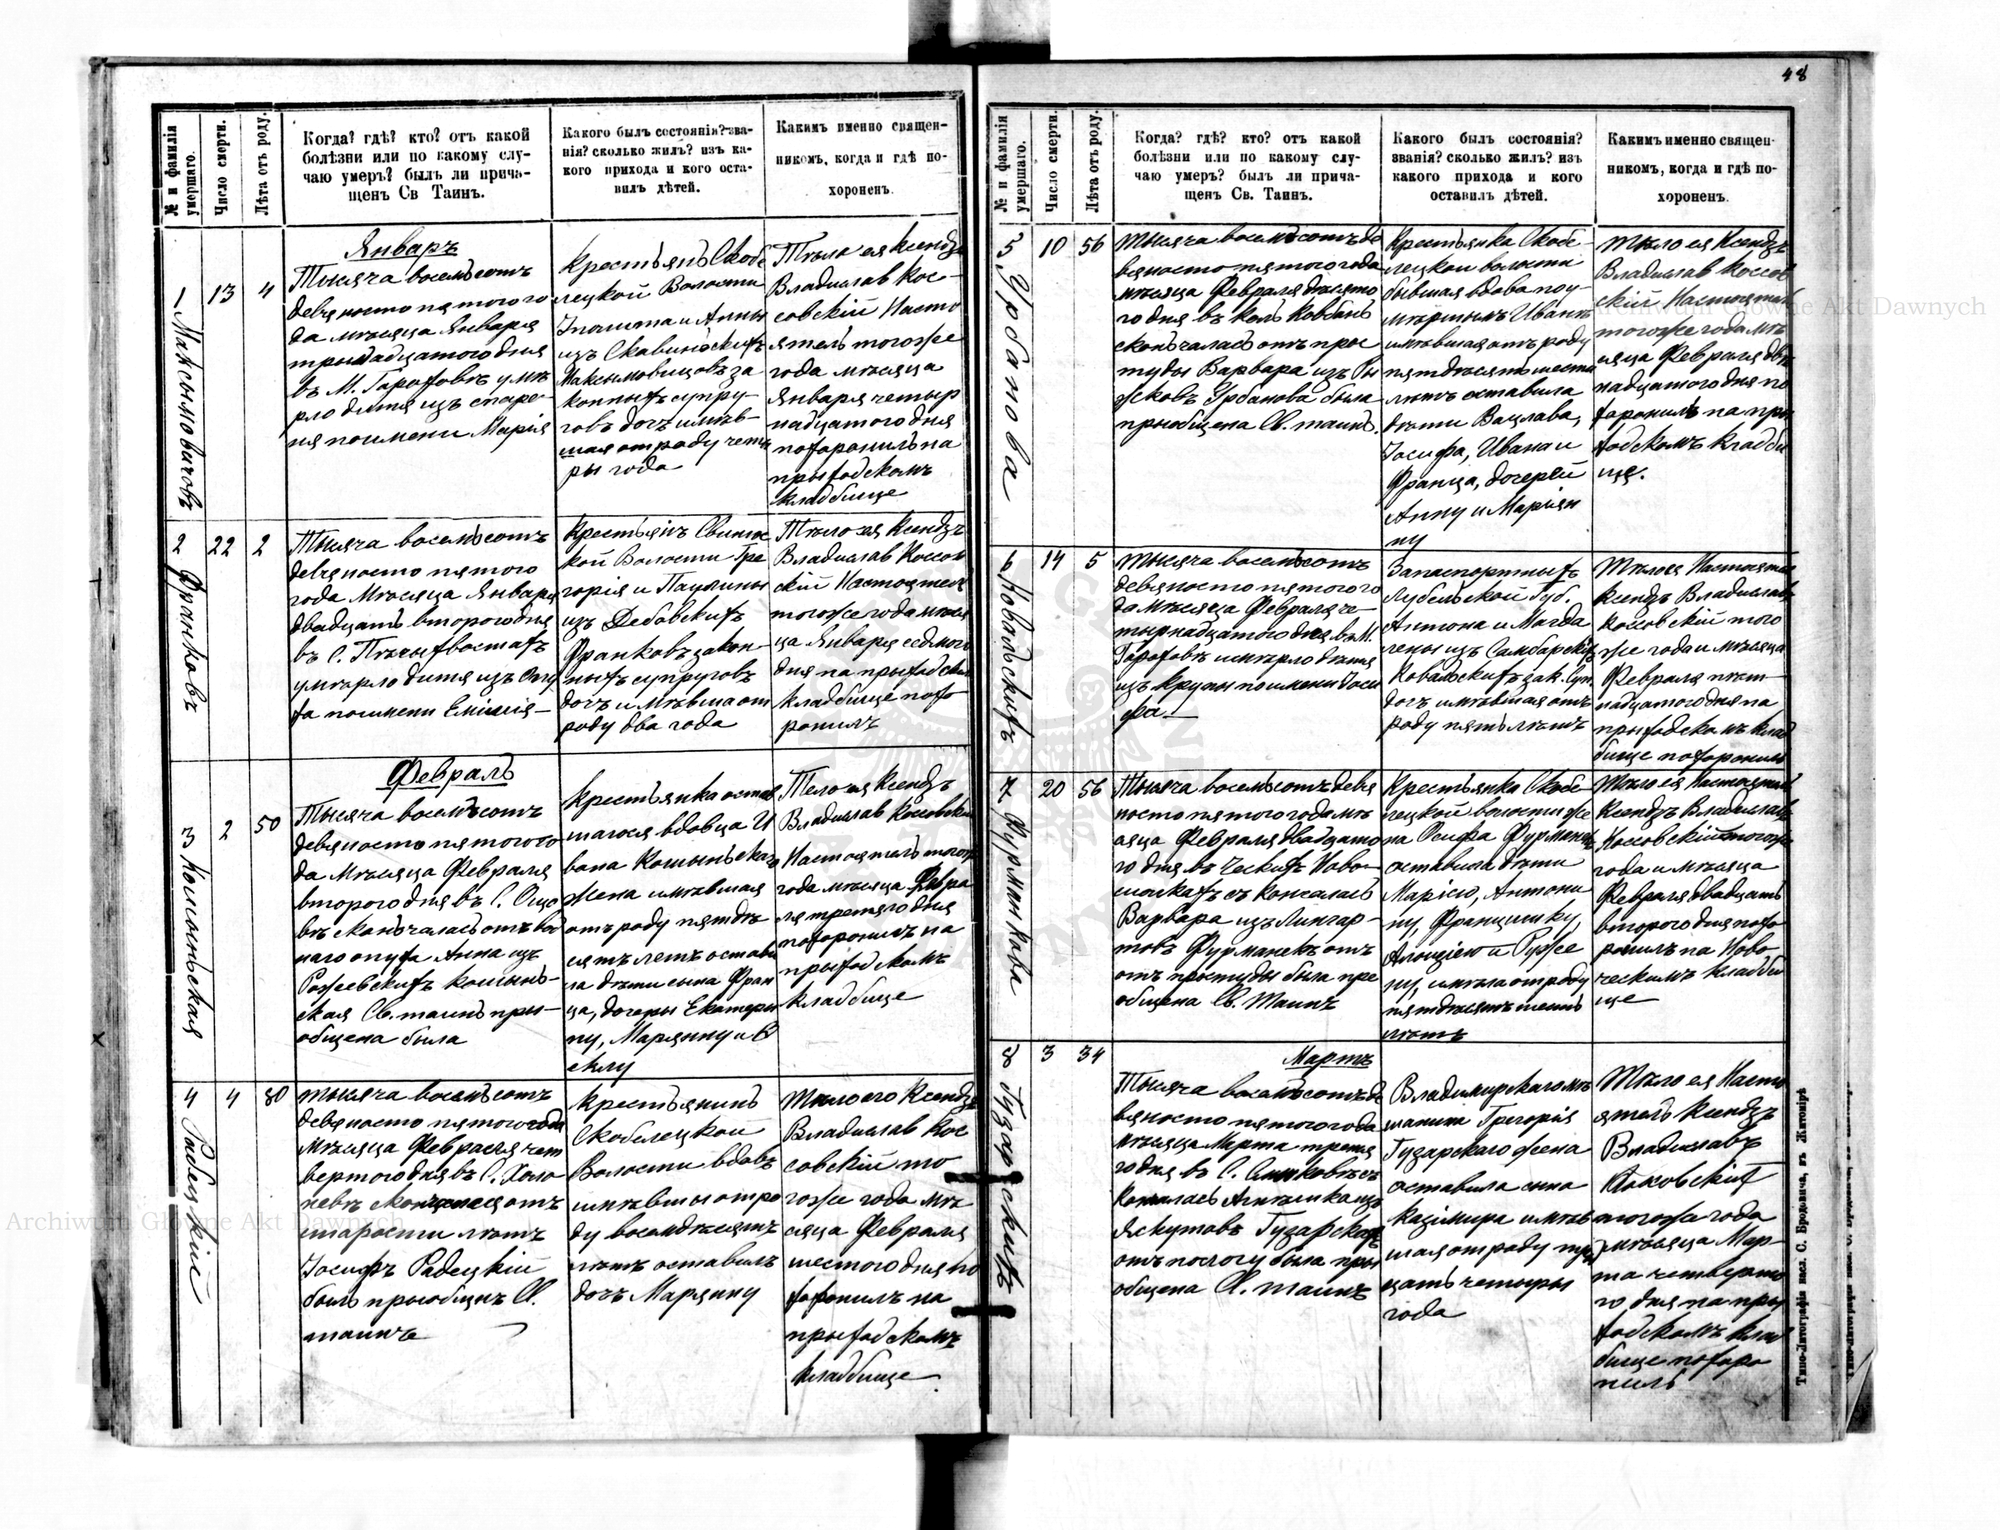 48
№ и фамилія умершаго.
Число смерти.
Лѣта отъ роду.
Когда? гдѣ? кто? отъ какой
болѣзни или по какому слу-
чаю умеръ? былъ ли прича-
щенъ Св Таинъ.
Какого былъ состоянія? зва-
нія? сколько жилъ? изъ ка-
кого прихода и кого оста-
вилъ дѣтей.
Какимъ именно священ-
никомъ, когда и гдѣ по-
хороненъ.
1
Максымовичовъ
13
4
Январъ
Тысяча восемъсотъ
девяносто пятого го
да мѣсяца Января
тринадцатого дня
въ М. Гороховѣ умѣ
рло дитя изъ
ня по имени Марія
крестьянъ Скобе
лецкой Волости
Ипалита и Анны
изъ
Максымовицовъ за
конныхъ супру-
говъ дочъ имѣв-
шая отроду четы
ры года
Тѣло ея ксендзъ
Владислав Кос-
совскій Насто
ятель тогоже
года мѣсяца
Января четыр
надцатого дня
похоронилъ на
прыходскомъ
кладбище
2
Франковъ
22
2
Тысяча восемъсотъ
девяносто пятого
года Мѣсяца Января
двадцатъ второго дня
въ С.
умѣрло дитя изъ
по имени Емилія-
Крестьянъ
кой Волости Гре
горія и Паулины
изъ Дебовскихъ
Франковъ закон-
ныхъ супруговъ
дочъ имѣвша от
роду два года
Тѣло ея Ксендзъ
Владислав Коссов
скій Настоятель
тогоже года мѣся
ца Января седмого
дня на прыходском
кладбище похо
ронилъ
Февралъ
3
2
50
Тысяча восемъсотъ
девяносто пятого го
да Мѣсяца Февраля
второго дня въ С.
вѣ сконъчаласъ отъ вод
наго опуха Анна изъ
Рожевскихъ
ская Св. таинъ пры-
общена была
Крестьянка остав
шагося вдовца И
вана
жена имѣвшая
отъ роду пятдѣ
сятъ летъ остави
ла дѣти сына Фран
ца, дочеры Екатеры
ну, Марянну и
еклу
Тело ея Ксендзъ
Владислав Коссовскій
Настоятель тогож
года мѣсяца Февра
ля третяго дня
похоронилъ на
прыходскомъ
кладбище
4
Радецкій
4
80
Тысяча восемъсотъ
девяносто пятого года
мѣсяца Февраля чет
вертого дня въ С. Холо
невѣ отъ
старости лѣтъ
Іосифъ Радецкій
былъ прыобщенъ Св.
таинъ
Крестьянинъ
Скобелецкой
Волости вдовъ
имѣвшы отро
ду восемдѣсятъ
лѣтъ оставилъ
дочъ Марянну
Тѣло его Ксендзъ
Владислав Кос
совскій то
гоже года мѣ
сяца Февраля
шестого дня по
хоронилъ на
прыходскомъ
кладбище
№ и фамилія умершаго.
Число смерти.
Лѣта отъ роду.
Когда? гдѣ? кто? отъ какой
болѣзни или по какому слу-
чаю умеръ? былъ ли прича-
щенъ Св. Таинъ.
Какого былъ состоянія?
званія? сколько жилъ? изъ
какого прихода и кого
оставилъ дѣтей.
Какимъ именно священ-
никомъ, когда и гдѣ по-
хороненъ.
5
Урбанова
10
56
Тысяча восемъсотъ де
вяносто пятого года
мѣсяца Февраля десято
го дня въ кол. Ковбань
сконъчаласъ отъ прос
туды Варвара изъ Ры
жковъ Урбанова была
прыобщена Св. таинъ.
Крестьянка Скобе-
лецкой волости
бывшая вдова по у-
мѣршымъ Иванѣ
имѣвшая отъ роду
пятдѣсятъ шести
лѣтъ оставила
дѣти Вацлава,
Іосифа, Ивана и
Франца, дочерей
Анну и Маріян
ну
Тѣло ея Ксендзъ
Владислав Коссов
скій Настоятель
тогоже года мѣ
сяца Февраля две
надцатого дня по
хоронилъ на пры
ходскомъ кладби
ще.
6
Ковальскихъ
14
5
Тысяча восемъсотъ
девяносто пятого го
да мѣсяца Февраля че-
тырнадцатого дня в М.
Гороховѣ умѣрло дитя
изъ крупы по имени Іози
фа-
Запаспортныхъ
Лубельской Губ.
Антона и Магда
лены изъ Самборскихъ
Ковальскихъ зак. суп.
дочъ имѣвшая отъ
роду пять лѣтъ
Тѣло ея Настоятель
ксендзъ Владислав
Коссовскій того
же года и мѣсяца
Февраля пят-
надцатого дня на
прыходскомъ клад
бище похоронилъ
7
Фурманкова
20
56
Тысяча восемъсотъ девя
носто пятого года мѣ
сяца Февраля двадцато
го дня въ Ческихъ Ново-
сканчалась
Варвара изъ Лингар-
товъ Фурманекъ от
отъ простуды была пре
общена Св. Таинъ
Крестьянка Скобе
лецкой волости же
на Осифа Фурманекъ
оставила дѣти
Марію, Антони
ну, Францишку,
и
ну, имѣла отроду
пятдѣсятъ шесть
лѣтъ
Тѣло ея Настоятель
Ксендзъ Владислав
Коссовскій тогоже
года и мѣсяца
Февраля двадцать
второго дня похо
ронилъ на Ново-
ческимъ кладби
ще
Мартъ
8
Гузарскихъ
3
34
Тысяча восемъсотъ де
вяносто пятого года
мѣсяца Марта третя
го дня въ С. съ
Анѣлика изъ
Яскутовъ Гузарская
отъ пологу была пры
общена Св. таинъ
Владимирскаго мѣ
щанина Грегорія
Гузарскаго жена
оставила сына
Казіміра имѣв
шая отроду трид
цать четыры
года
Тѣло ея Насто
ятель Ксендзъ
Владиславъ
тогоже года
мѣсяца Мар-
та четверто
го дня на пры
ходскомъ клад
бище похоро
нилъ
Типо-Литографія насл. С. Бродовича, въ Житомірѣ
Archiwum Główne Akt Dawnych
Archiwum Główne Akt Dawnych